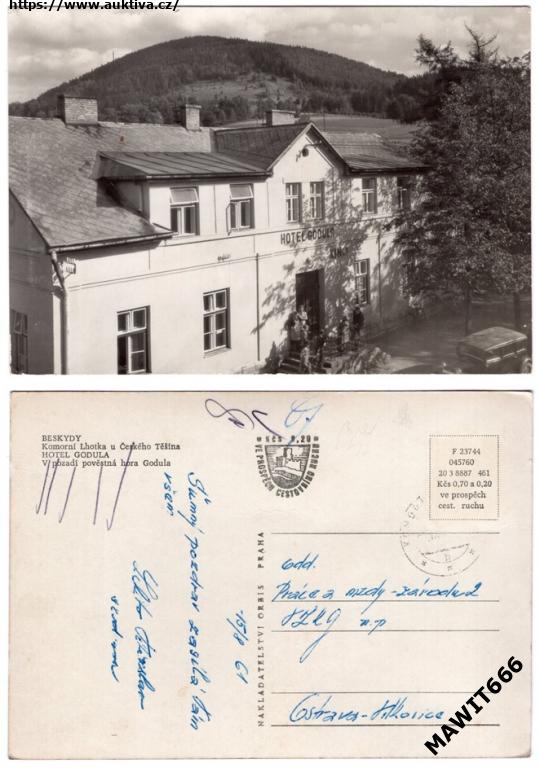 https://www.auktiva.cz/
HOTEL GODULA
BESKYDY
Komorní Lhotka u Českého Těšína
HOTEL GODULA
V pozadí pověstná hora Godula
Kčs 0,20
VE PROSPĚCH CESTOVNÍHO RUCHU
F 23744
045760
20 3 8887 461
Kčs 0,70 a 0,20
ve prospěch
cest. ruchu
NAKLADATELSTVÍ ORBIS PRAHA
pozdrav zasílá Vám
všem
15/8 61
odd.
Práce a mzdy - závodu 2
n.p
Ostrava - Vítkovice
MAWIT666